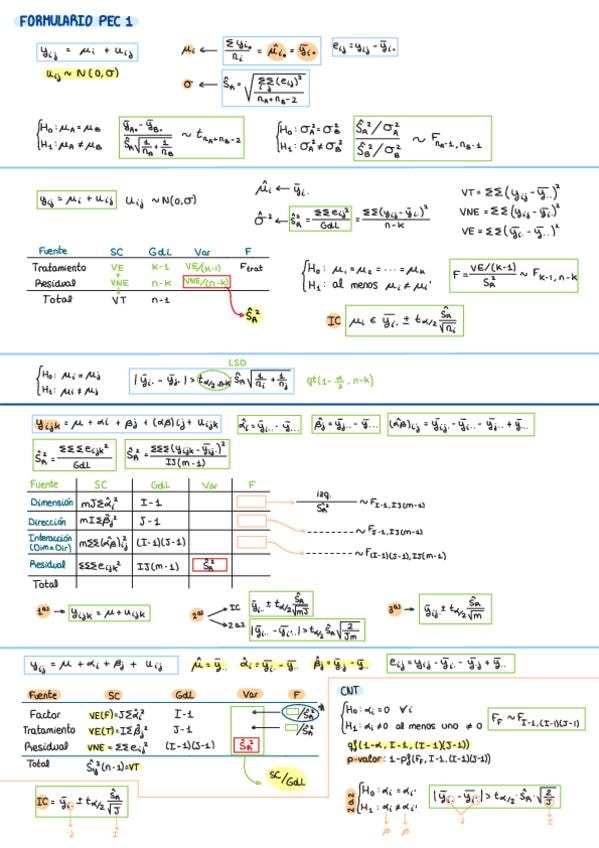 FORMULARIO PEC 1
y_ij = μ_i + u_ij
u_ij ~ N(0,σ)
μ_i ← Σ y_i• / n_i = μ̂_i• = ȳ_i•
e_ij = y_ij - ȳ_i•
σ ← Ŝ_R = √( ΣΣ(e_ij)² / (n_A + n_B - 2) )
H₀: μ_A = μ_B
H₁: μ_A ≠ μ_B
(ȳ_A• - ȳ_B•) / (Ŝ_R √(1/n_A + 1/n_B)) ~ t_{n_A+n_B-2}
H₀: σ²_A = σ²_B
H₁: σ²_A ≠ σ²_B
(Ŝ²_A/σ²_A) / (Ŝ²_B/σ²_B) ~ F_{n_A-1, n_B-1}
y_ij = μ_i + u_ij  u_ij ~ N(0,σ)
μ̂_i ← ȳ_i•
σ̂² ← Ŝ²_R = ΣΣ e_ij² / GdL = ΣΣ(y_ij - ȳ_i•)² / (n-k)
VT = ΣΣ(y_ij - ȳ..)²
VNE = ΣΣ(y_ij - ȳ_i•)²
VE = ΣΣ(ȳ_i• - ȳ..)²
Fuente SC GdL Var F
Tratamiento VE k-1 VE/(k-1) F_trat
+
Residual VNE n-k VNE/(n-k)
Total VT n-1
Ŝ²_R
H₀: μ₁ = μ₂ = ... = μ_k
H₁: al menos μ_i ≠ μ_i'
F = (VE/(k-1)) / Ŝ²_R ~ F_{k-1, n-k}
IC μ_i ∈ ȳ_i• ± t_{α/2} Ŝ_R/√n_i
LSD
H₀: μ_i = μ_j
H₁: μ_i ≠ μ_j
|ȳ_i• - ȳ_j•| > t_{α/2, n-k} Ŝ_R √(1/n_i + 1/n_j)
qt(1 - α/2, n-k)
y_ijk = μ + α_i + β_j + (αβ)_ij + u_ijk
α̂_i = ȳ_i.. - ȳ...
β̂_j = ȳ_.j. - ȳ...
(α̂β)_ij = ȳ_ij. - ȳ_i.. - ȳ_.j. + ȳ...
Ŝ²_R = ΣΣΣ e_ijk² / GdL
Ŝ²_R = ΣΣΣ(y_ijk - ȳ_ij.)² / IJ(m-1)
Fuente SC GdL Var F
Dimensión mJΣα̂_i² I-1
Dirección mIΣβ̂_j² J-1
Interacción (Dim×Dir) mΣΣ(α̂β)²_ij (I-1)(J-1)
Residual ΣΣΣe_ijk² IJ(m-1) Ŝ²_R
Total
izq. / Ŝ²_R ~ F_{I-1, IJ(m-1)}
~ F_{J-1, IJ(m-1)}
~ F_{(I-1)(J-1), IJ(m-1)}
y_ijk = μ + u_ijk
IC ȳ_i.. ± t_{α/2} Ŝ_R/√(mJ)
2a2 |ȳ_i.. - ȳ_i'..| > t_{α/2} Ŝ_R √(2/Jm)
ȳ_ij. ± t_{α/2} Ŝ_R/√m
y_ij = μ + α_i + β_j + u_ij
μ̂ = ȳ..
α̂_i = ȳ_i. - ȳ..
β̂_j = ȳ_.j - ȳ..
e_ij = y_ij - ȳ_i. - ȳ_.j + ȳ..
Fuente SC GdL Var F
Factor VE(F)=JΣα̂_i² I-1 /Ŝ²_R
Tratamiento VE(T)=IΣβ̂_j² J-1 /Ŝ²_R
Residual VNE = ΣΣe_ij² (I-1)(J-1) Ŝ²_R
Total Ŝ²_ij(n-1)=VT
SC/GdL
CNT
H₀: α_i = 0 ∀i
H₁: α_i ≠ 0 al menos uno ≠ 0
F_F ~ F_{I-1, (I-1)(J-1)}
qf(1-α, I-1, (I-1)(J-1))
p-valor: 1-pf(F_F, I-1, (I-1)(J-1))
IC = ȳ_i. ± t_{α/2} Ŝ_R/√J
2a2
H₀: α_i = α_i'
H₁: α_i ≠ α_i'
|ȳ_i. - ȳ_i'.| > t_{α/2} · Ŝ_R · √(2/J)
β β